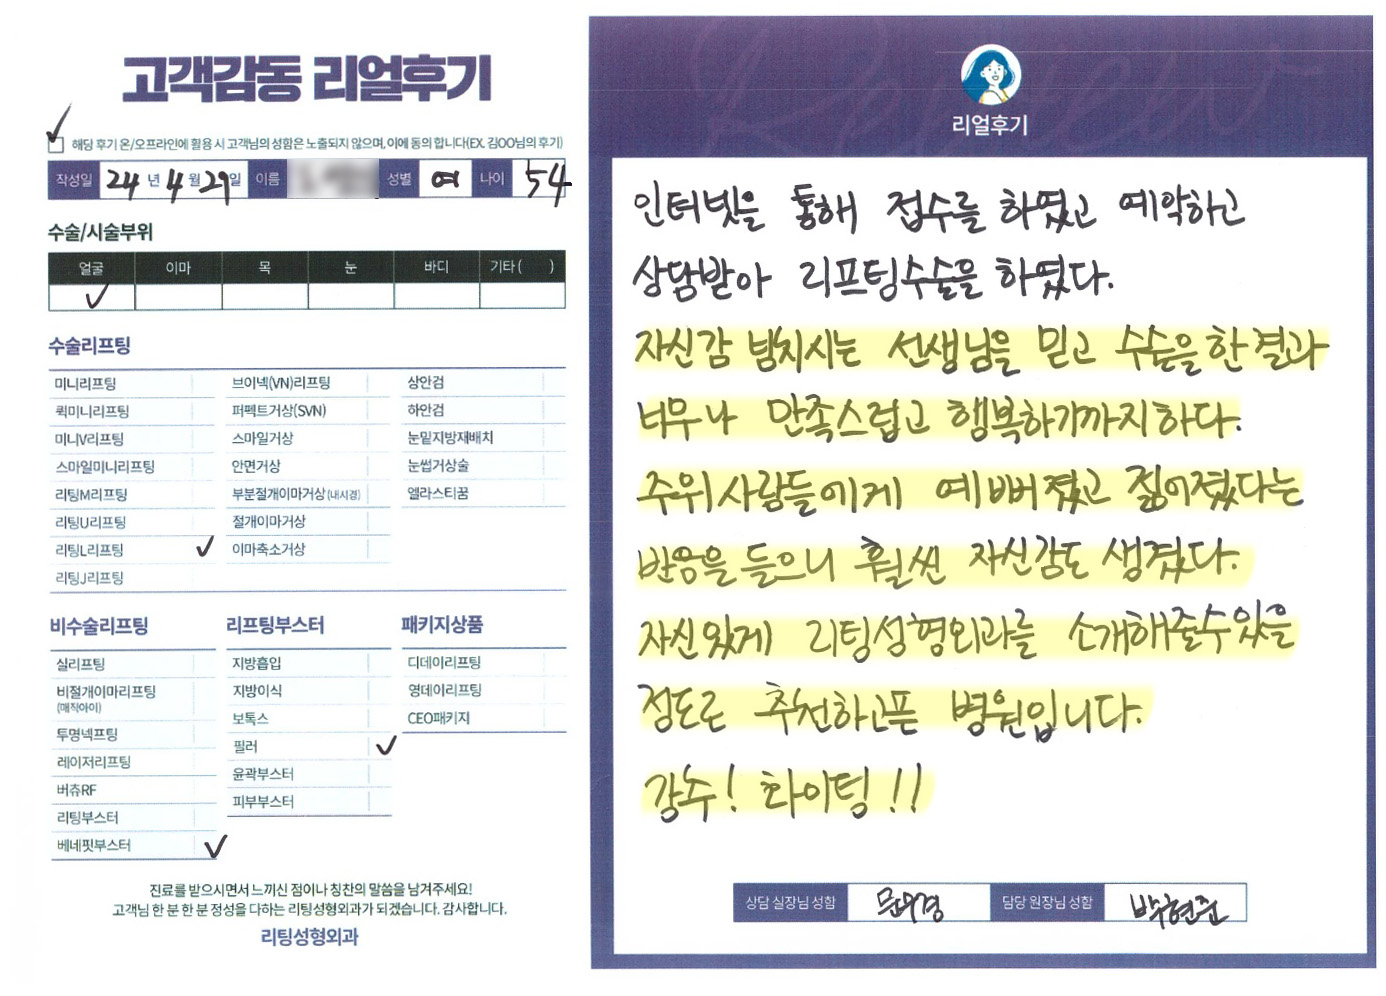 고객감동 리얼후기
해당 후기 온/오프라인에 활용 시 고객님의 성함은 노출되지 않으며, 이에 동의 합니다(EX. 김OO님의 후기)
작성일 24 년 4 월 29 일 이름 성별 여 나이 54
수술/시술부위
얼굴 이마 목 눈 바디 기타 ( )
수술리프팅
미니리프팅 브이넥(VN)리프팅 상안검
퀵미니리프팅 퍼펙트거상(SVN) 하안검
미니V리프팅 스마일거상 눈밑지방재배치
스마일미니리프팅 안면거상 눈썹거상술
리팅M리프팅 부분절개이마거상(내시경) 엘라스티꿈
리팅U리프팅 절개이마거상
리팅L리프팅 이마축소거상
리팅J리프팅
비수술리프팅 리프팅부스터 패키지상품
실리프팅 지방흡입 디데이리프팅
비절개이마리프팅 지방이식 영데이리프팅
(매직아이) 보톡스 CEO패키지
투명넥프팅 필러
레이저리프팅 윤곽부스터
버츄RF 피부부스터
리팅부스터
베네핏부스터
진료를 받으시면서 느끼신 점이나 칭찬의 말씀을 남겨주세요!
고객님 한 분 한 분 정성을 다하는 리팅성형외과가 되겠습니다. 감사합니다.
리팅성형외과
Review
리얼후기
인터넷을 통해 접수를 하였고 예약하고
상담받아 리프팅수술을 하였다.
자신감 넘치시는 선생님을 믿고 수술을 한 결과
너무나 만족스럽고 행복하기까지하다.
주위사람들에게 예뻐졌고 젊어졌다는
반응을 들으니 훨씬 자신감도 생겼다.
자신있게 리팅성형외과를 소개해줄수있을
정도로 추천하고픈 병원입니다.
강추! 화이팅!!
상담 실장님 성함 담당 원장님 성함 박현준